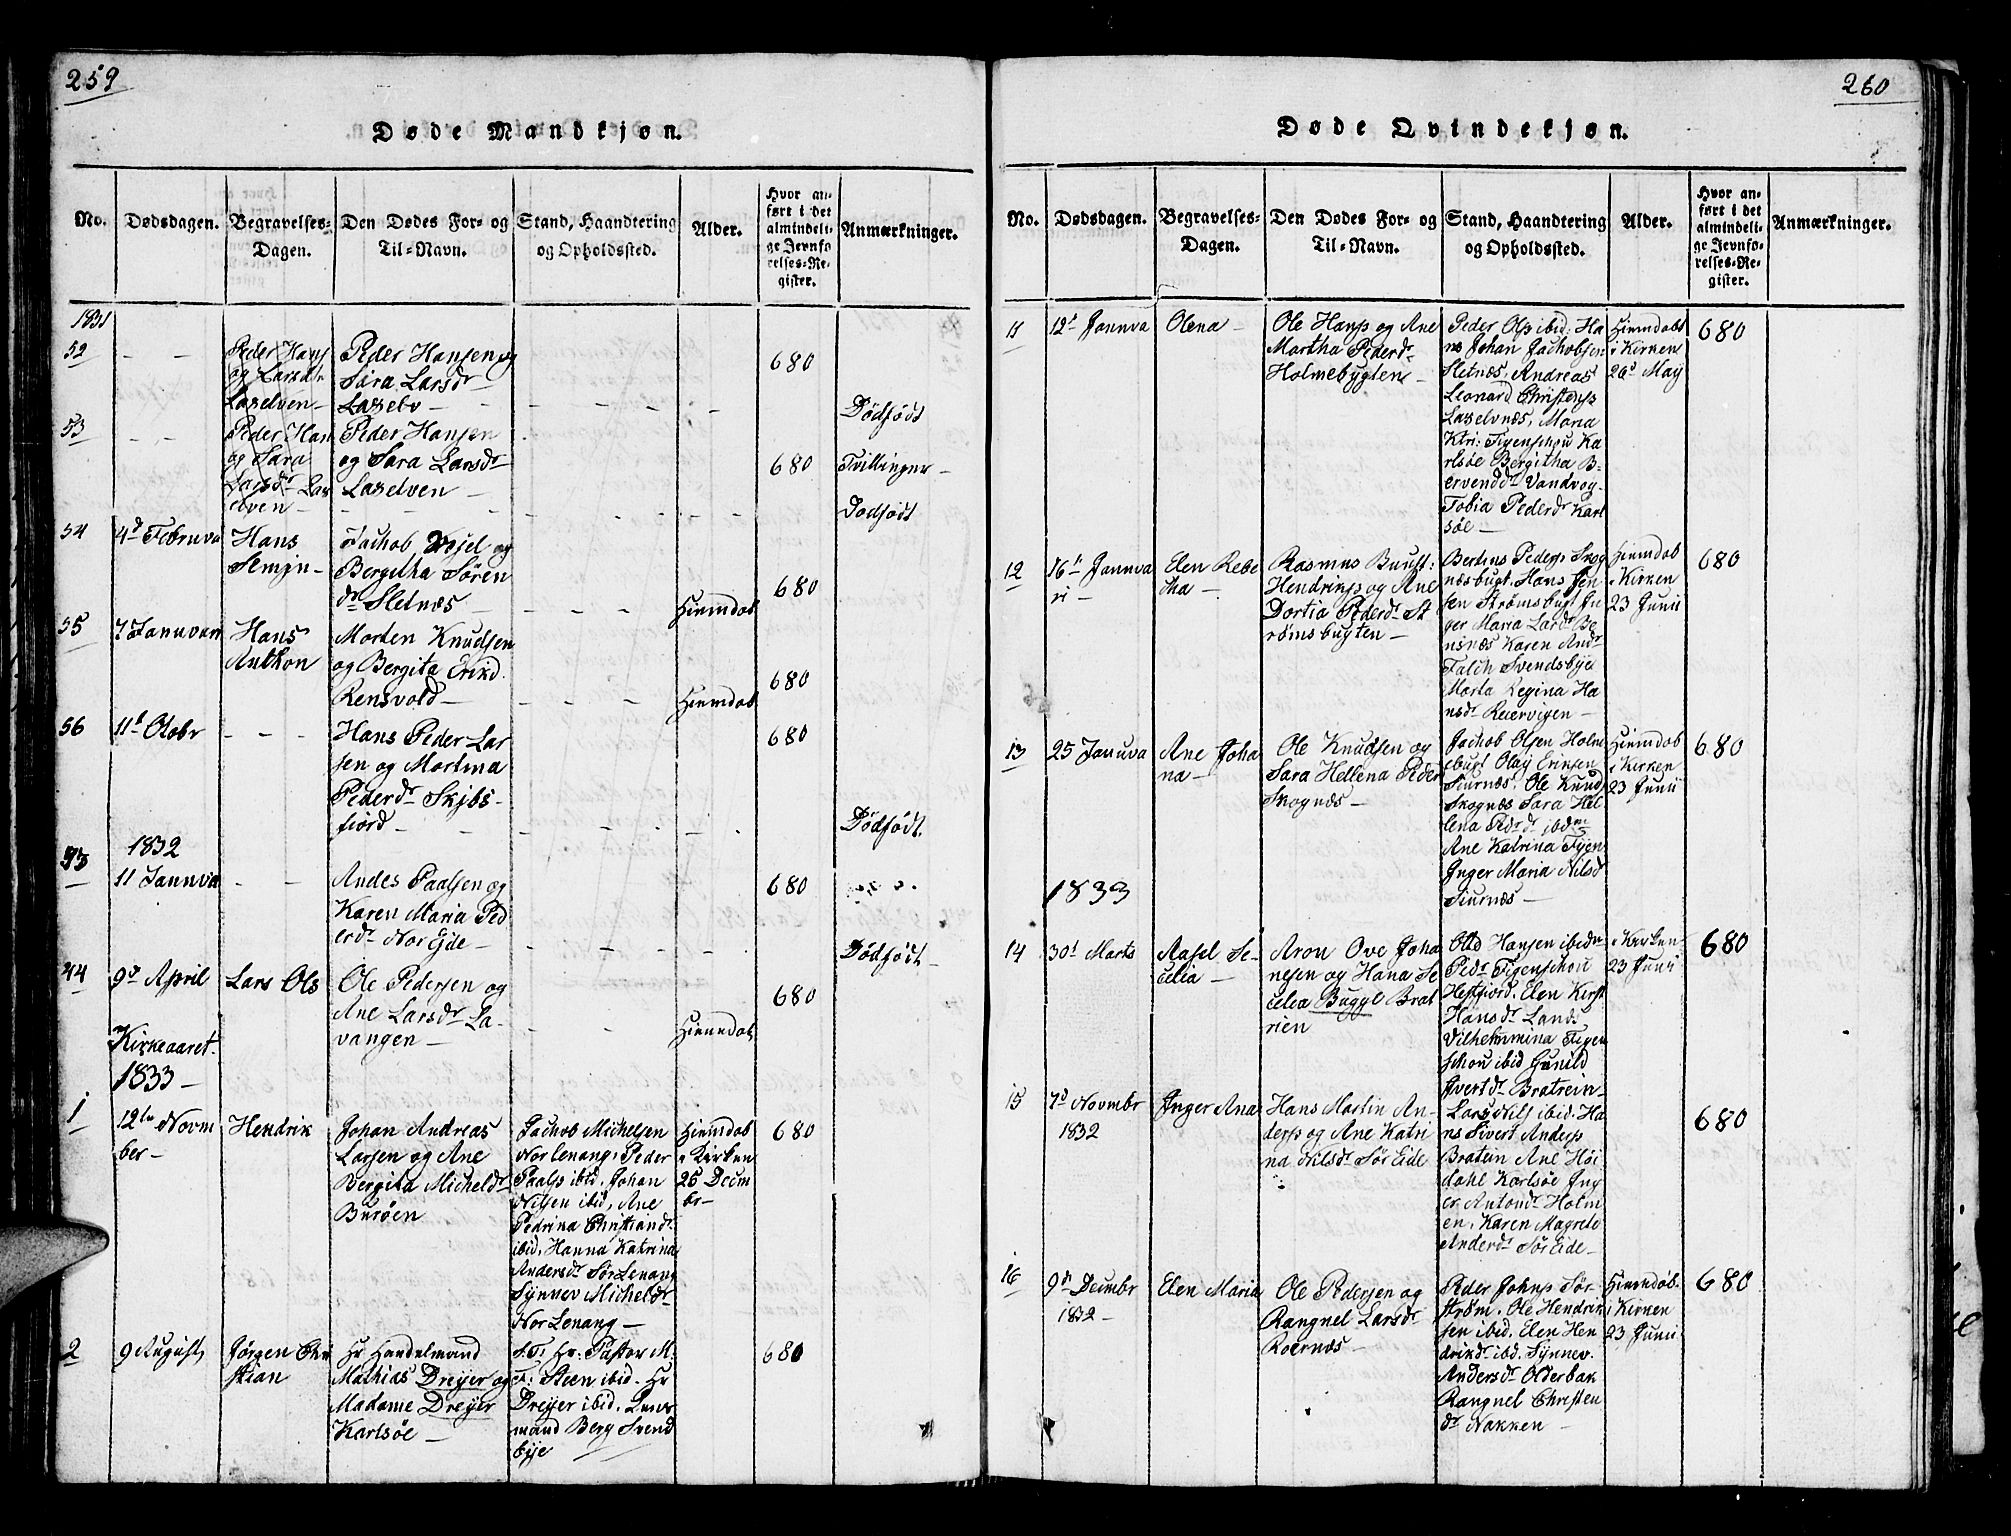 259
Døde Mandkjøn.
No.
Dødsdagen.
Begravelses-
Dagen.
Den Dødes For- og
Til-Navn.
Stand, Haandtering
og Opholdssted.
Alder.
Hvor an-
ført i det
almindeli-
ge Jevnfø-
relses-Re-
gister.
Anmærkninger.
1831
52
Peder Hans
og Larsdr
Laxelven
Peder Hansen og
Sara Larsdr
Laxelv
680
Dødfødt
53
Peder Han
og Sara
Larsdr Lax
elven
Peder Hansen
og Sara Larsdr
Laxelven
680
Tvillinger
Dødfødt
54
4d Februva
Hans
Jachob
og
Bergitha Søren
dr Sletnæs
Hiemdøb
680
55
7 Januvari
Hans
Anthon
Morten Knudsen
og Bergita Erikd.
Rensvold
Hiemdøb
680
56
11t Otobr
Hans Peder Lar
sen og Martina
Pederdr Skjbs-
fiord
680
Dødfødt.
1832
11 Januva
Andes Paalsen og
Karen Maria Ped
erdr Nor Ejde
680
Dødfødt
44
9d April
Lars Ols
Ole Pedersen og
Ane Larsdr La-
vangen
Hiemdøb
680
Kirkeaaret.
1833
1
12te Novm
ber
Hendrik
Johan Andreas
Larsen og Ane
Bergita Micheldr
Burøen
Jachob Michelsen
Nor Lenang. Peder
Paalss ibid. Johan
Nilsen ibid, Ane
Pedrina Christiandr
ibid. Hanna Katrina
Andersdr Sør Lenang
Synnev Micheldr
Nor Lenang
Hiemdøb
i Kirken
26 Decm
br
680
2
9 August
Jørgen Chri
stian
Hr Handelmand
Mathias Dreyer og
Madame Dreyer
Karlsøe
S.T. Hr. Pastor M.
F: Steen ibid. Hr
Dreyer ibid.
mand Berg Svend
bye
680
260
Døde Qvindekjøn.
No.
Dødsdagen.
Begravelses-
Dagen.
Den Dødes For- og
Til-Navn.
Stand, Haandtering
og Opholdssted.
Alder.
Hvor an-
ført i det
almindeli-
ge Jevnfø-
relses-Re-
gister.
Anmærkninger.
11
12t Januva
Olena
Ole Hanss og Ane
Martha Pederdr
Holmebugten
Peder Olss ibid: Ha
ns Johan Jachobsen
Sletnæs, Andreas
Leonard Christenss
Laxelvnæs, Maria
Kri: Figenschou Ka
rlsøe Bergitha B-
Vandvog
Tobia Pederdr Karl
søe
Hiemdøbt
i Kirken
26d May
680
12
16t Januva
ri
Elen Rebe
tha
Rasmus Buust:
Hendrikss og Ane
Dortia Pederdr St
rømsbugten
Bertius Pederss Skog
næsbugt. Hans Jen
sen Strømsbugt In
ger Maria Larsdr Re
insnæs Karen Andr
Falch Svendsbye
Marta Regina Ha
nsdr Reiervigen
Hiemdøb
i Kirken
23 Junii
680
13
25 Januva
Ane Joha
na
Ole Knudsen og
Sara Hellena Peder
Skognæs
Jachob Olsen Holm
ebugt Olay Eriksen
Siurnæs. Ole Knuds
Skognæs Sara Hel
lena Pedrdr ibdm
Ane Katrina Figen
Inger Maria Nilsd
Siurnæs
Hiemdøb
i Kirken
23 Junii
680
1833
14
30t Marts
Aasel Se-
celia
Aron Ove Joha
nesen og Hana Se
celea Bugge Brat
rien
Old Hansen ibidm
Pedr Figenschou
Hestfiord. Elen Kirst
Hansdr Lands
Vilhelmmina Figen
schou ibid Gunild
Ivertdr Bratrein
i Kirken
23 Junii
680
15
7d Novmbr
1832
Inger Ana
Hans Martin An-
derss og Ane Katri
na Nilsdr Sør Eide
Lars Nils ibid. Ha
ns Sivert Anderss
Bratein Ane Høi
dahl Karlsøe Ing
er Antondr Holm
en, Karen Magrete
Anderdr Sør Eide
680
16
9dr Decmbr
1832
Elen Maria
Ole Pedersen og
Rangnel Larsdr
Roernæs
Peder Johnss Sør
strøm. Ole Hendrik
sen ibid. Elen Hen
drikdr ibd. Synnev
Andersdr Olderbak
Rangnel Christen
dr Nakken
Hiemdøb.
i Kirken
23 Junii
680